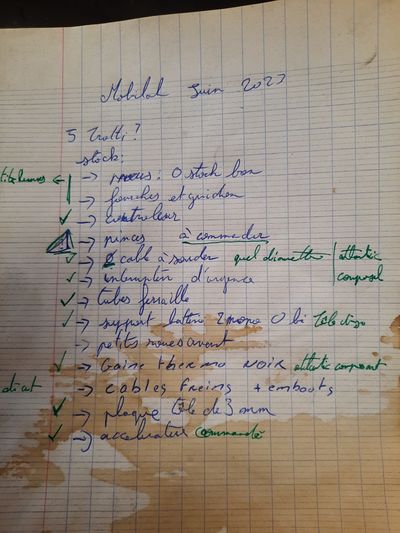 Mobilab Juin 2023
5 Trotti?
stock:
→ roues : 0 stock bon
→ fourches et guidon
✓ → controleur
→ pinces à commander
✓ → cable à souder quel diametre atlantic composant
✓ → interrupteur d'urgence
✓ → tubes ferraille
✓ → support batterie 2 mono 0 bi
→ petits roues avant
✓ → Gaine thermo NOIR atlantic composant
→ cables freins + embouts
✓ → plaque tôle de 3 mm
✓ → accelerateur commandé